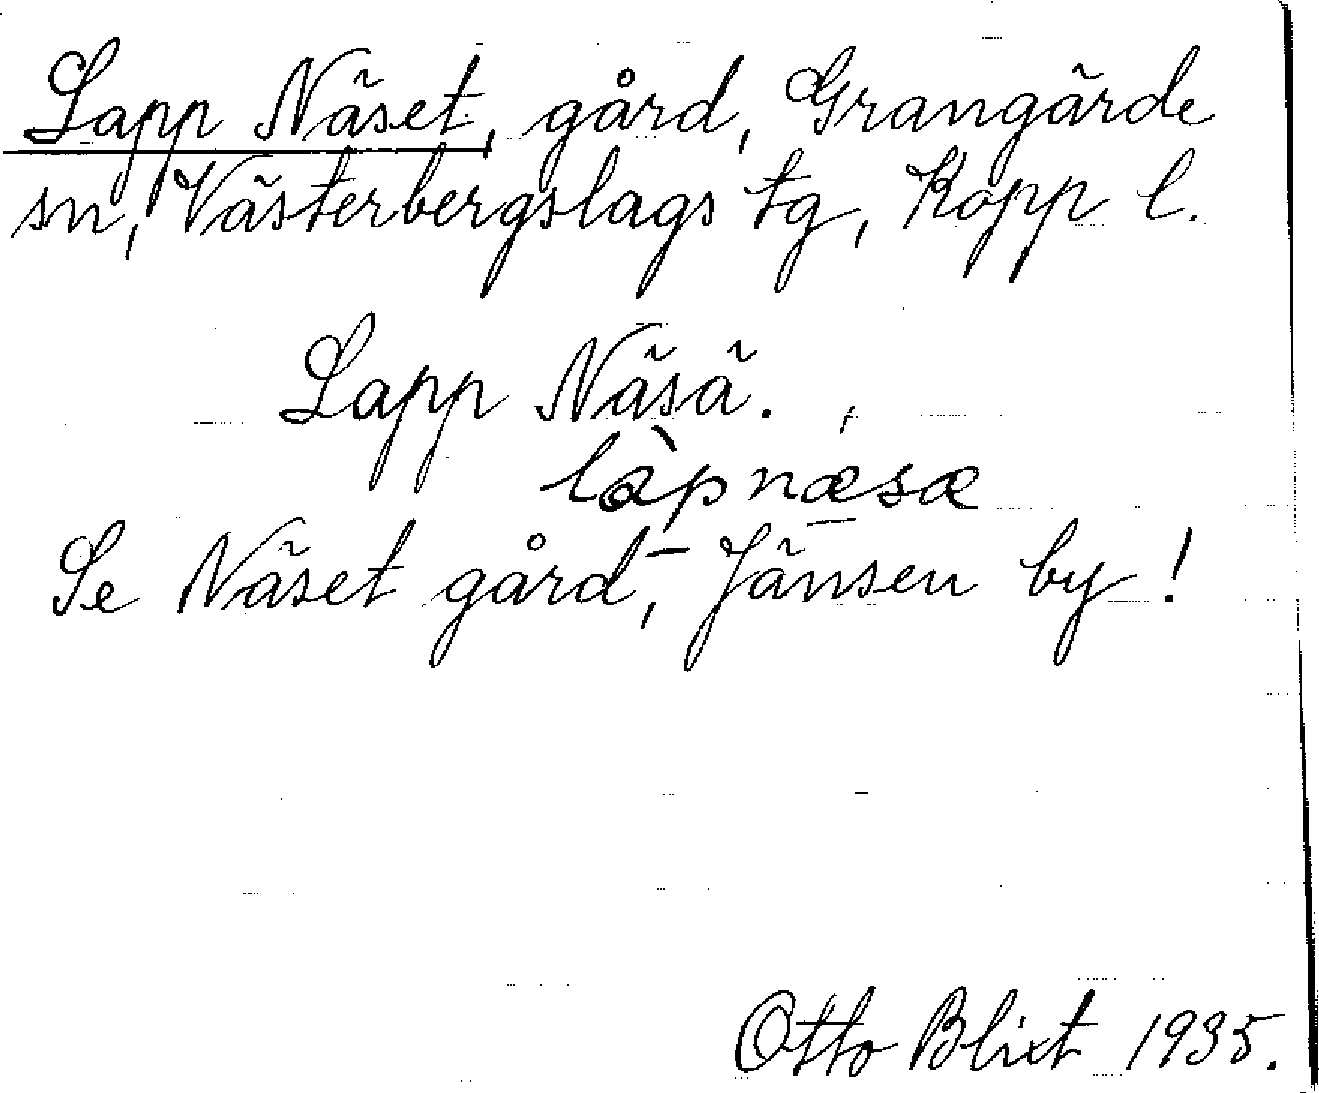 Lapp Näset, gård, Grangärde
sn, Västerbergslags tg, Kopp l.
Lapp Näsä.
làpnæsæ
Se Näset gård, - Jänsen by!
Otto Blixt 1935.